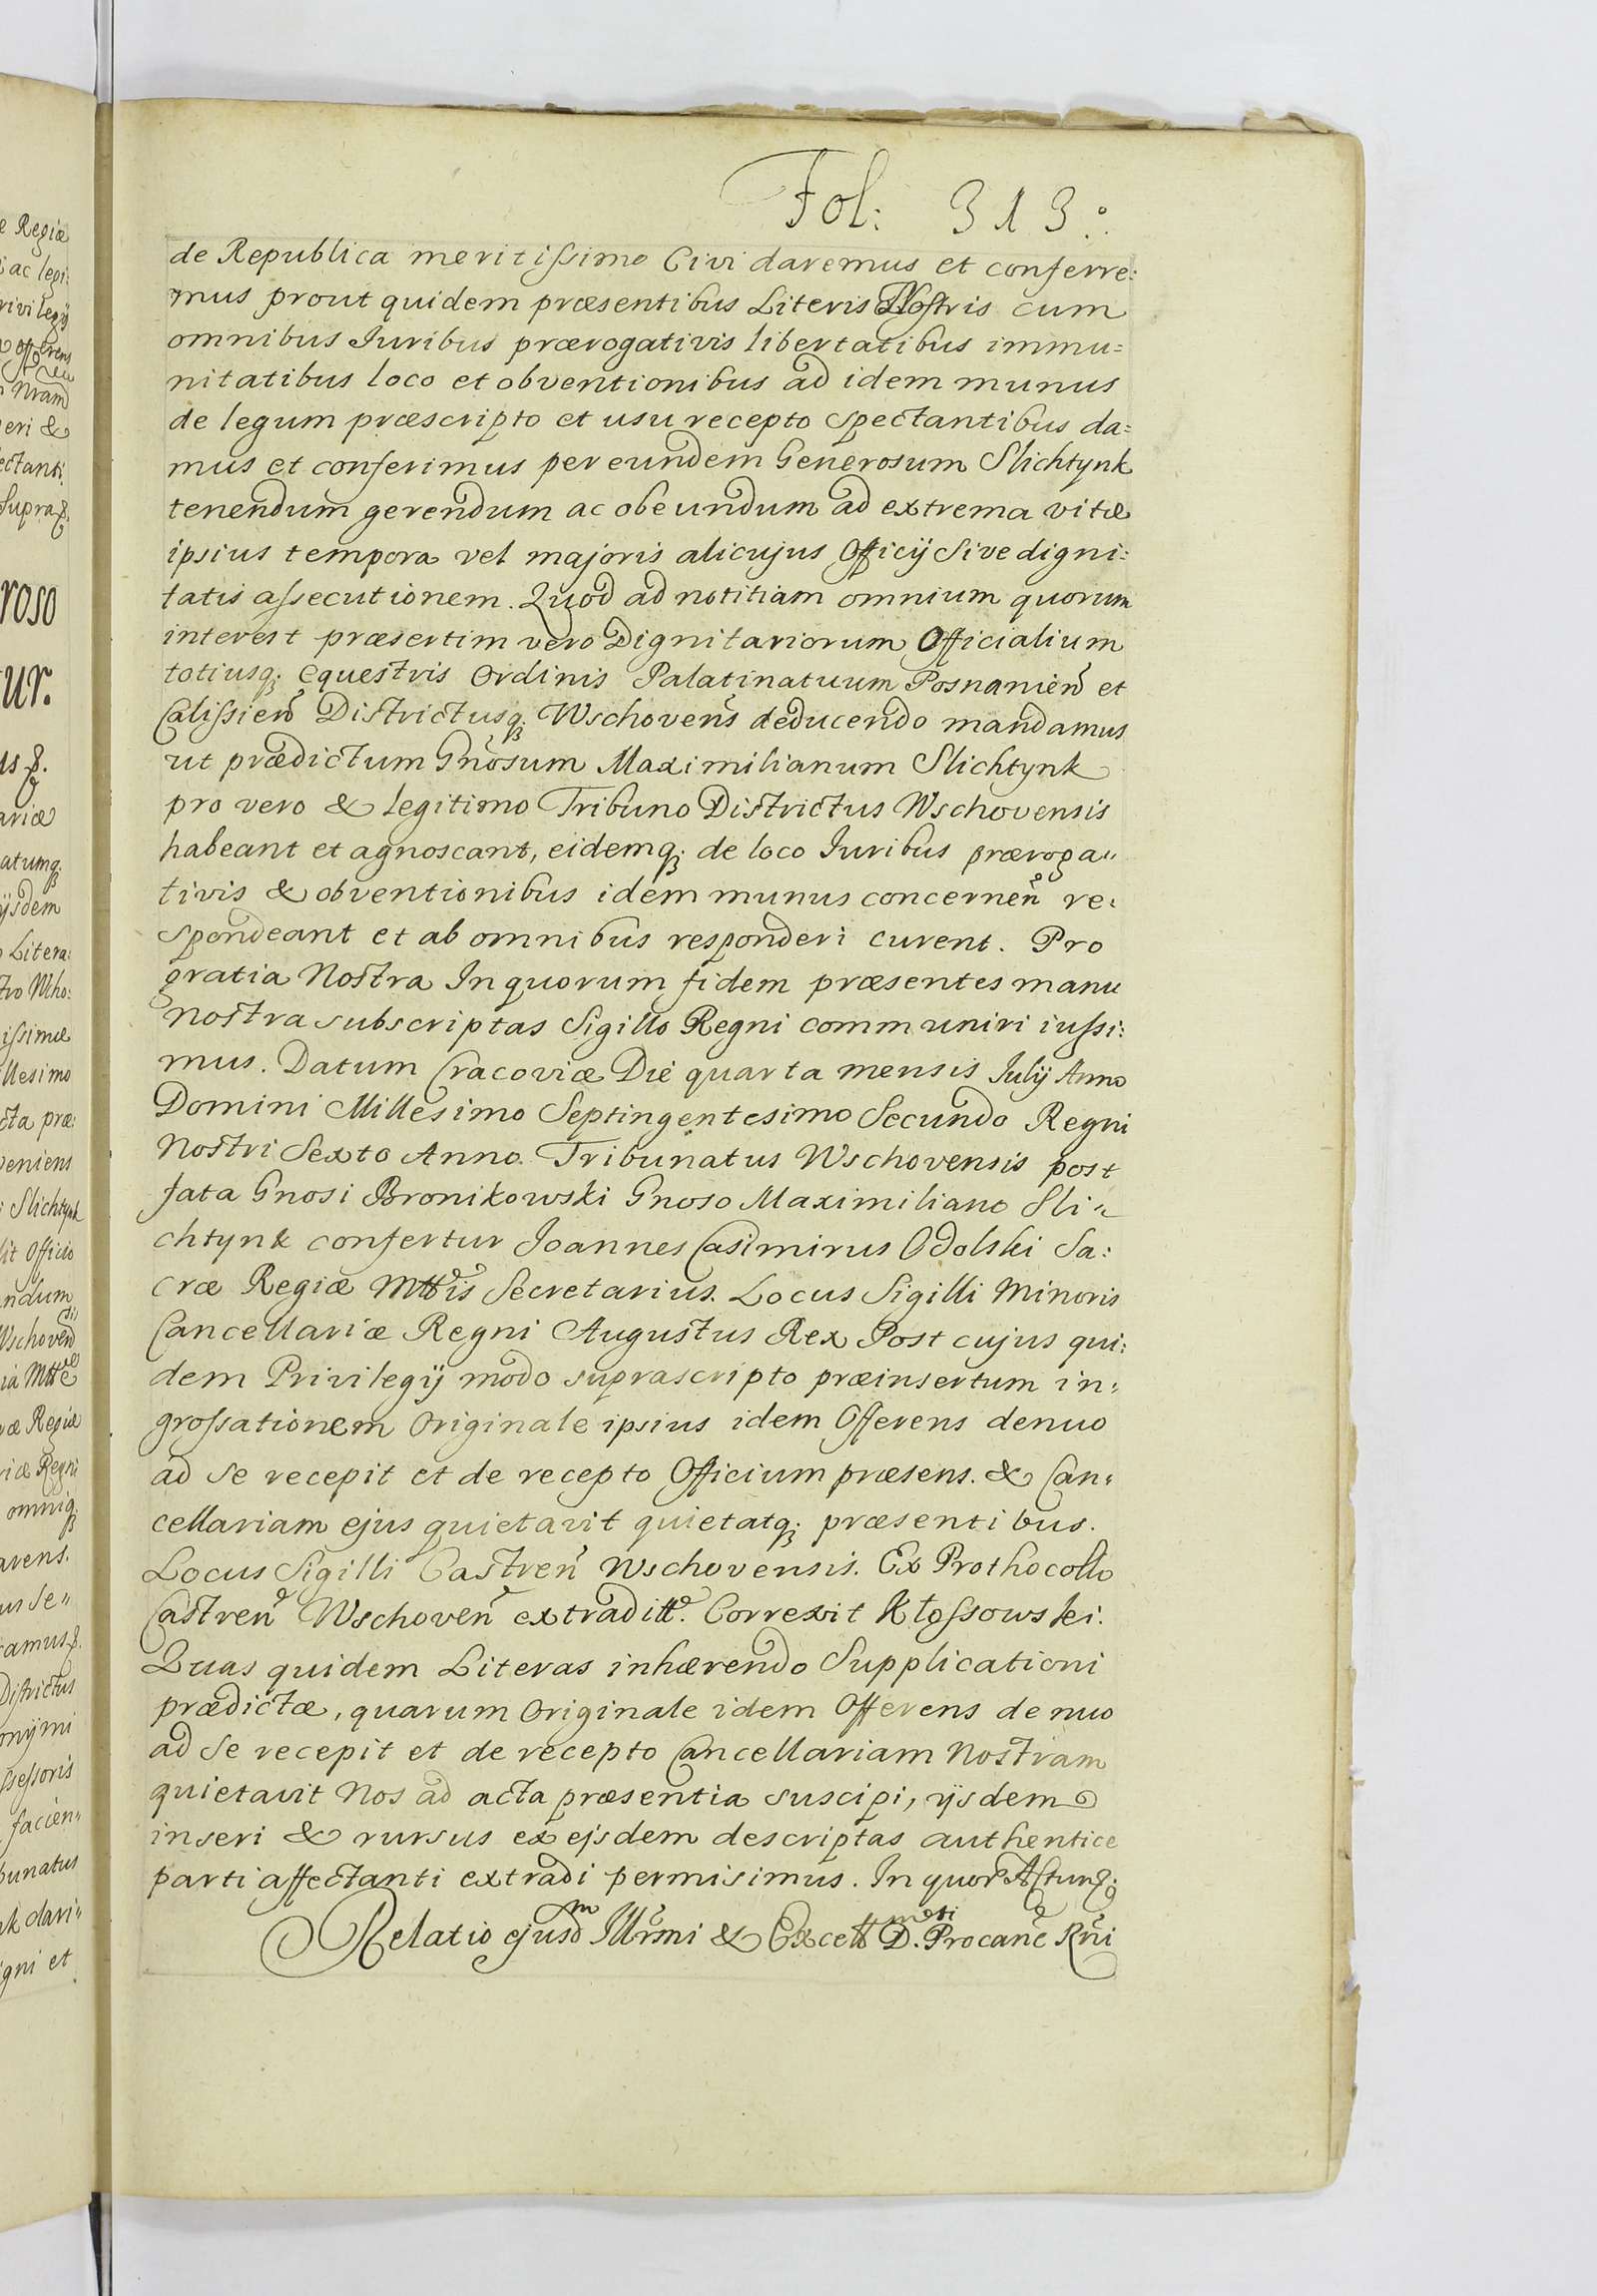 Fol: 313:
de Republica meritissimo Civi daremus et conferre:
mus prout quidem præsentibus Literis Nostris cum
omnibus Iuribus prærogativis libertatibus immu=
nitatibus loco et obventionibus ad idem munus
de legum præscripto et usu recepto spectantibus da=
mus et conferimus per eundem Generosum Slichtynk
tenendum gerendum ac obeundum ad extrema vitæ
ipsius tempora vel majoris alicujus Officij Sive digni:
tatis assecutionem. Quod ad notitiam omnium quorum
interest præsertim vero Dignitariorum Officialium
totiusq; equestris Ordinis Palatinatuum Posnanien̄ et
Calissien̄ Districtusq; Wschoven̄s deducendo mandamus
ut prædictum Gnōsum Maximilianum Slichtynk
pro vero & legitimo Tribuno Districtus Wschovensis
habeant et agnoscant, eidemq; de loco Iuribus præroga"
tivis & obventionibus idem munus concernēn re:
spondeant et ab omnibus responderi curent. Pro
gratia Nostra In quorum fidem præsentes manu
nostra subscriptas Sigillo Regni communiri iussi:
mus. Datum Cracoviæ Die quarta mensis Iulij Anno
Domini Millesimo Septingentesimo Secundo Regni
Nostri Sexto Anno. Tribunatus Wschovensis post
fata Gnosi Bronikowski Gnoso Maximiliano Sli"
chtynk confertur Joannes Casimirus Odolski Sa:
cræ Regiæ Mttis Secretarius. Locus Sigilli Minoris
Cancellariæ Regni Augustus Rex Post cujus qui:
dem Privilegij modo suprascripto præinsertum in"
grossationem Originale ipsius idem Offerens denuo
ad se recepit et de recepto Officium præsens. & Can"
cellariam ejus quietavit quietatq; præsentibus.
Locus Sigilli Castren̄ Wschovensis. Ex Prothocollo
Castren̄ Wschoven̄ extraditt. Correxit Kłossowski.
Quas quidem Literas inhærendo Supplicationi
prædictæ, quarum Originale idem Offerens denuo
ad se recepit et de recepto Cancellariam Nostram
quietavit Nos ad acta præsentia suscipi, ijsdem
inseri & rursus ex ejsdem descriptas authentice
parti affectanti extradi permisimus. In quor Actum
Relatio ejusdm Illrmi & Excell mti D. Procanc̄ Rn̄i